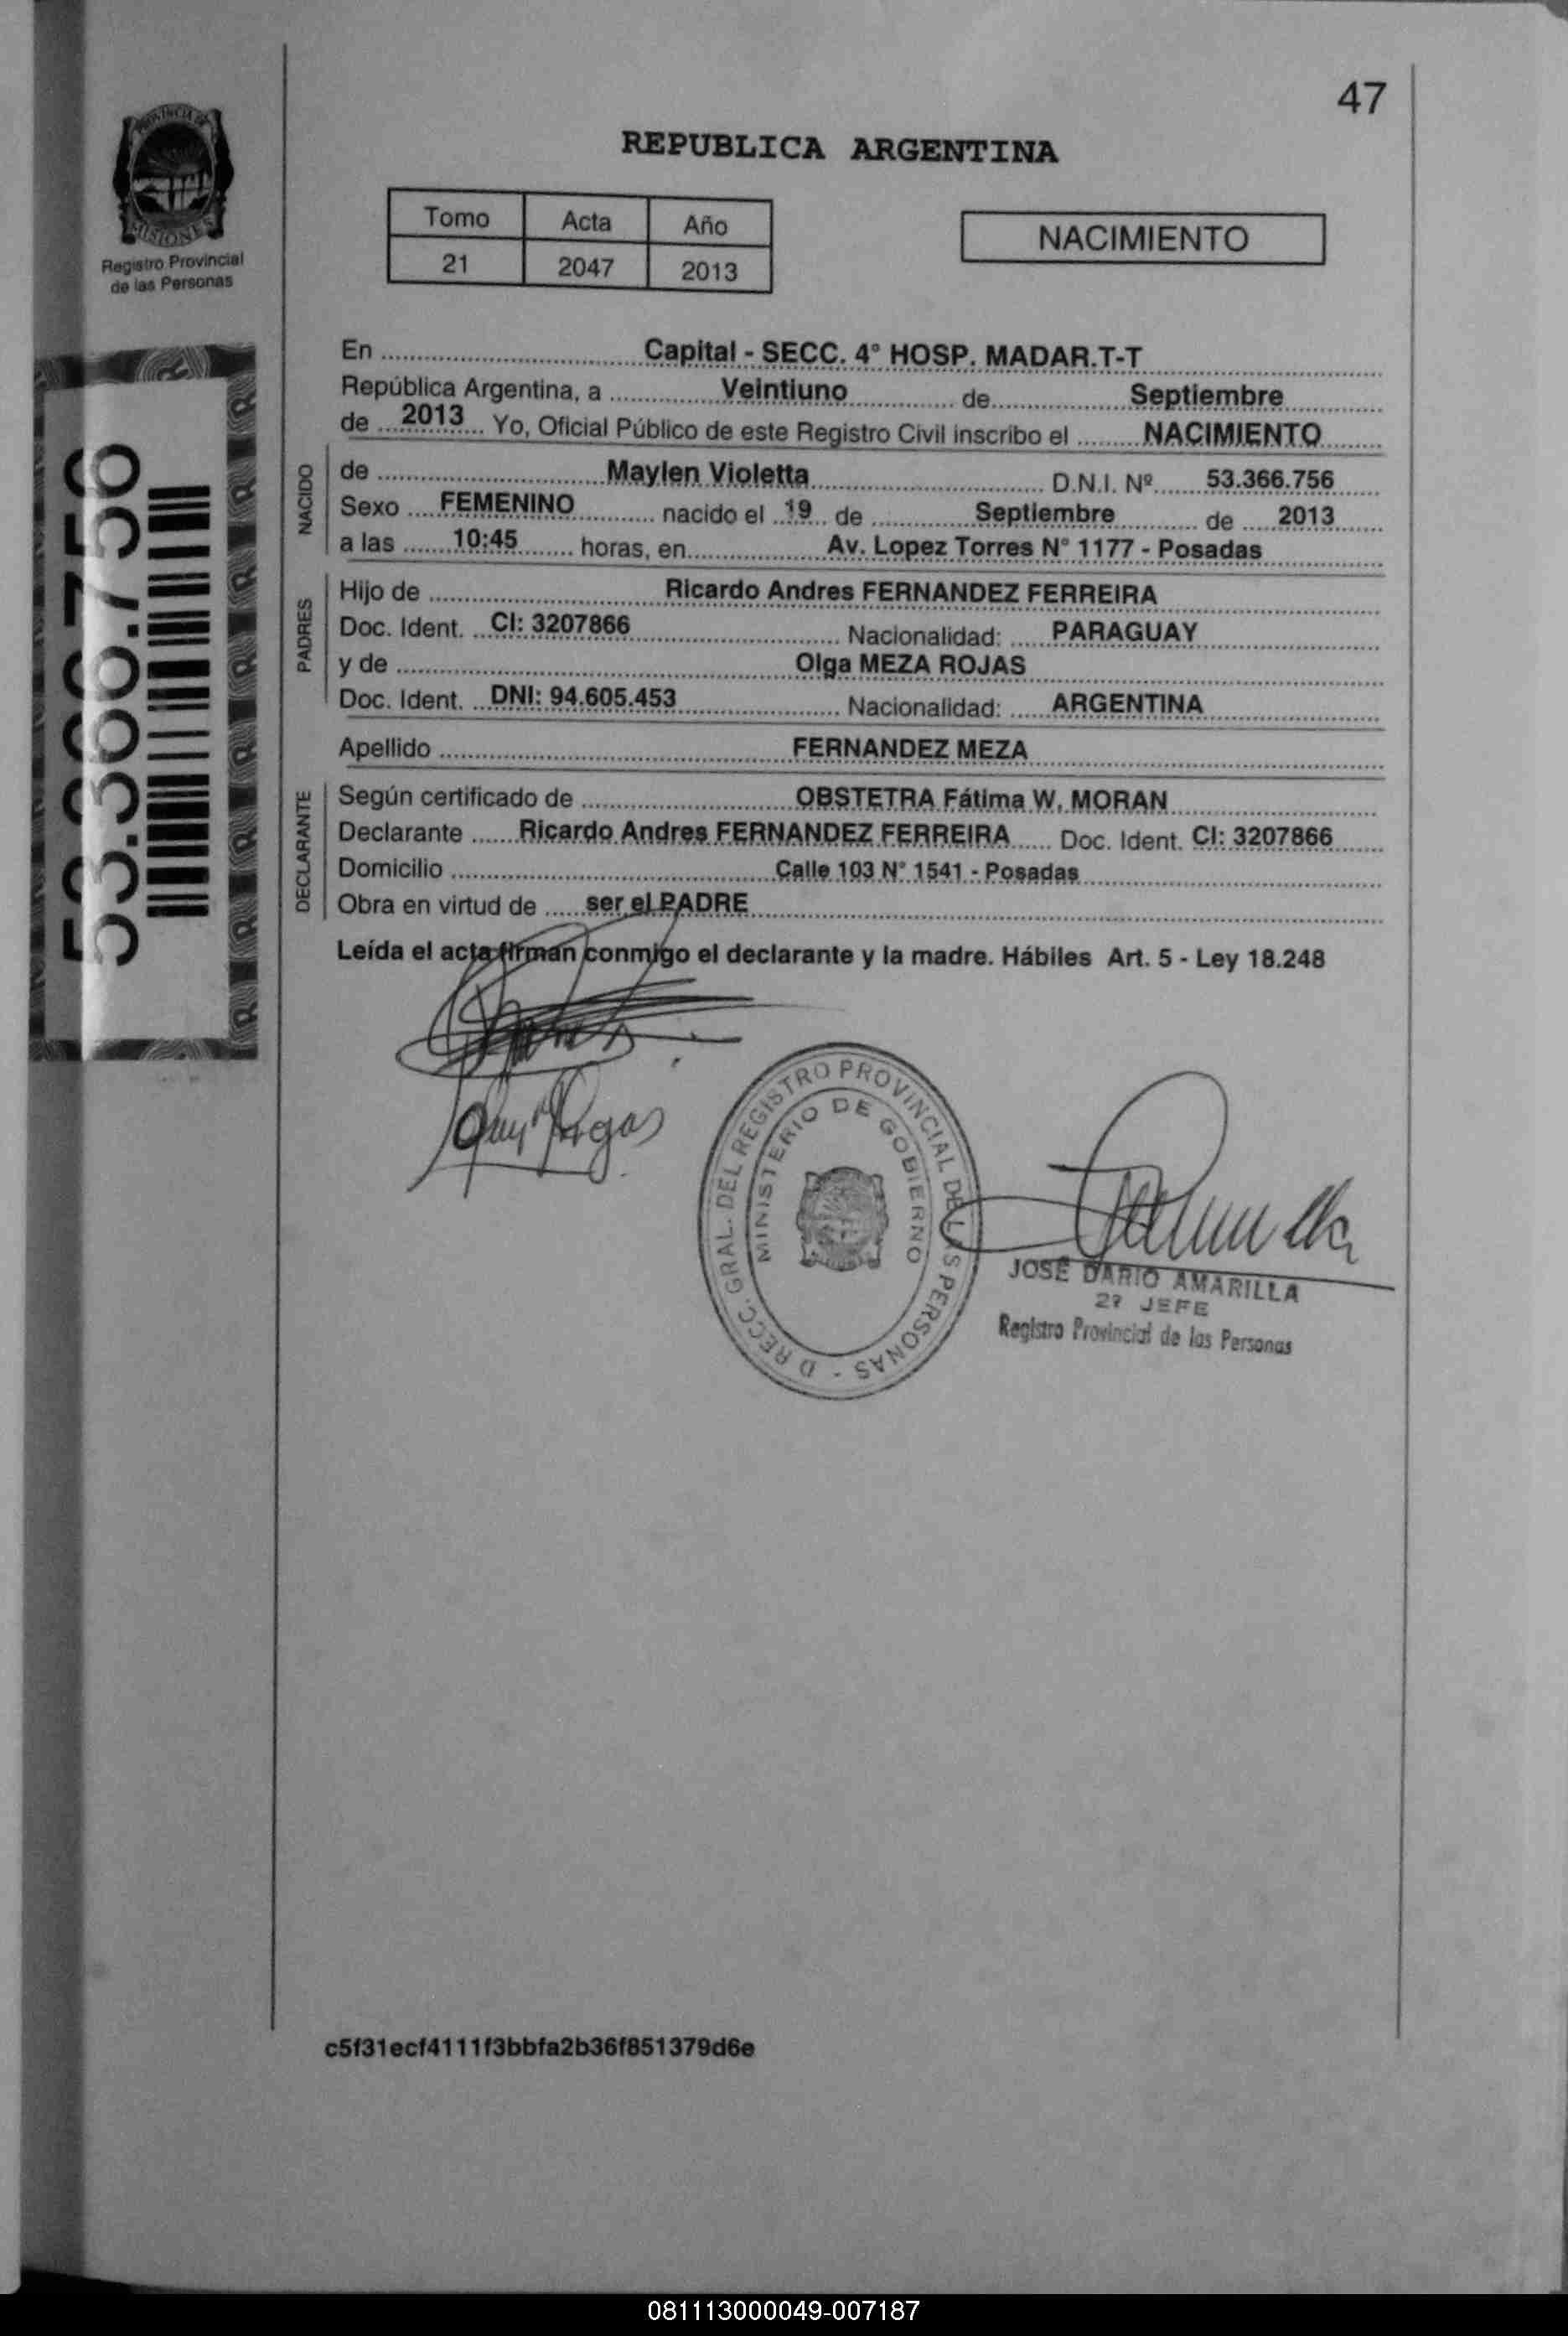 47
PROVINCIA DE
MISIONES
Registro Provincial
de las Personas
REPUBLICA ARGENTINA
Tomo Acta Año
21 2047 2013
NACIMIENTO
53.366.756
En Capital - SECC. 4° HOSP. MADAR.T-T
República Argentina, a Veintiuno de Septiembre
de 2013 Yo, Oficial Público de este Registro Civil inscribo el NACIMIENTO
NACIDO
de Maylen Violetta D.N.I. Nº 53.366.756
Sexo FEMENINO nacido el 19 de Septiembre de 2013
a las 10:45 horas, en Av. Lopez Torres N° 1177 - Posadas
PADRES
Hijo de Ricardo Andres FERNANDEZ FERREIRA
Doc. Ident. CI: 3207866 Nacionalidad: PARAGUAY
y de Olga MEZA ROJAS
Doc. Ident. DNI: 94.605.453 Nacionalidad: ARGENTINA
Apellido FERNANDEZ MEZA
DECLARANTE
Según certificado de OBSTETRA Fátima W. MORAN
Declarante Ricardo Andres FERNANDEZ FERREIRA Doc. Ident. CI: 3207866
Domicilio Calle 103 N° 1541 - Posadas
Obra en virtud de ser el PADRE
Leída el acta firman conmigo el declarante y la madre. Hábiles Art. 5 - Ley 18.248
DIRECC. GRAL. DEL REGISTRO PROVINCIAL DE LAS PERSONAS -
MINISTERIO DE GOBIERNO
JOSE DARIO AMARILLA
2º JEFE
Registro Provincial de las Personas
c5f31ecf4111f3bbfa2b36f851379d6e
081113000049-007187